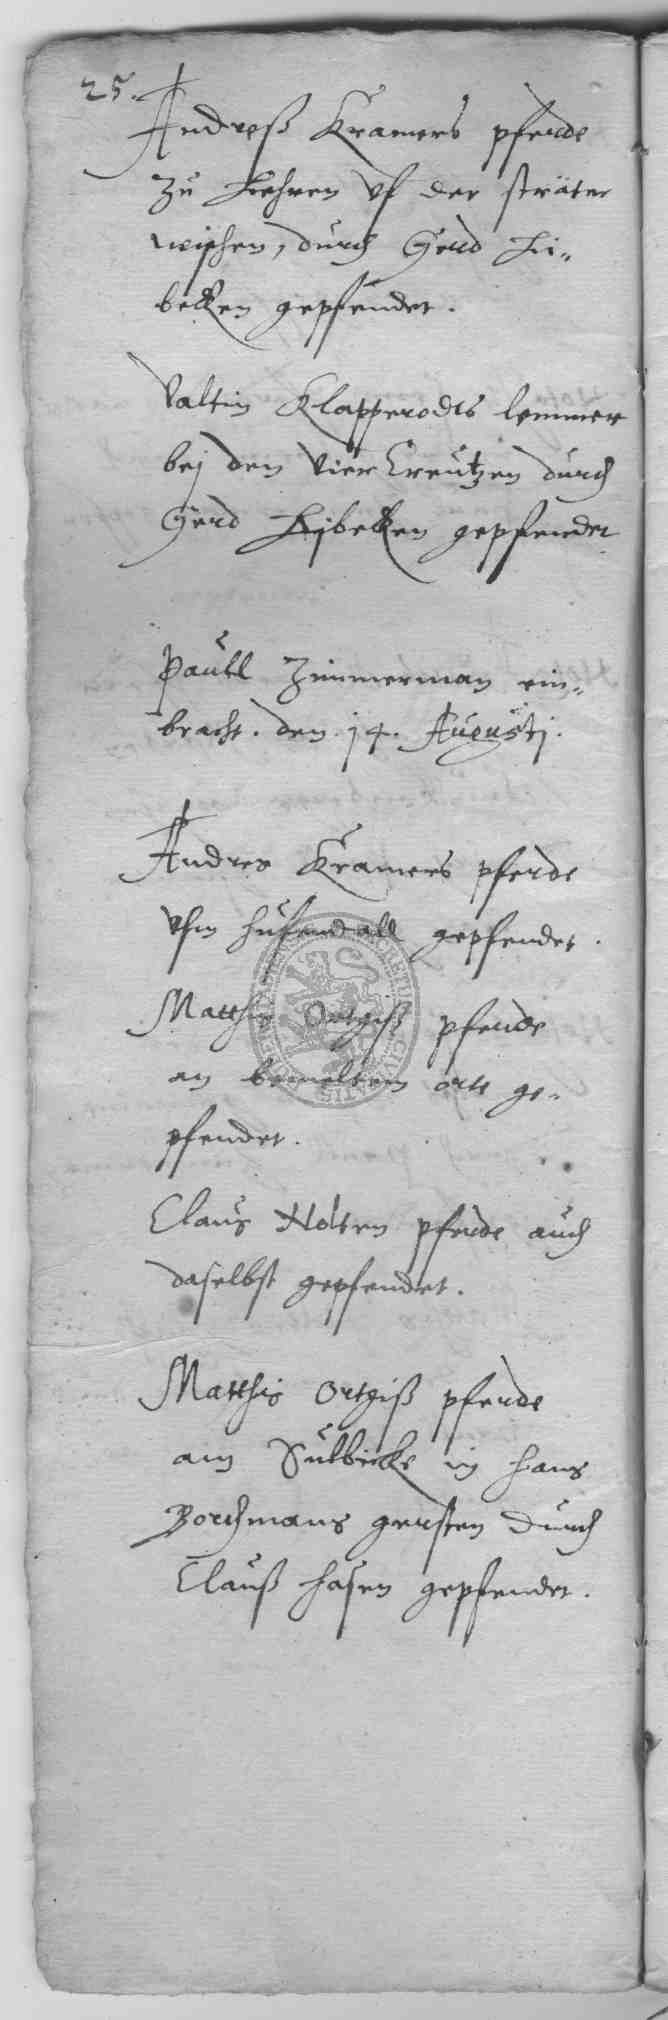 25.
Andreß Kramers pferde
zu Lehren vf der sträter
wischen, durch Gerd Li-
becken gepfendet.
Valtin Klapperodts lemmer
bej den Vier Creutzen durch
Gerd Lybecken gepfendet
Paull Zimmerman ein-
bracht. den 14. Augustj.
Andres Kramers pferde
vfm hufendall gepfendet.
Matthis Ortgiß pferde
an bemeltem orte ge-
pfendet.
Claus Nolten pferde auch
daselbst gepfendet.
Matthis Ortgiß pferde
am Sulbicke in Hans
Borchmans gersten durch
Clauß Hasen gepfendet.